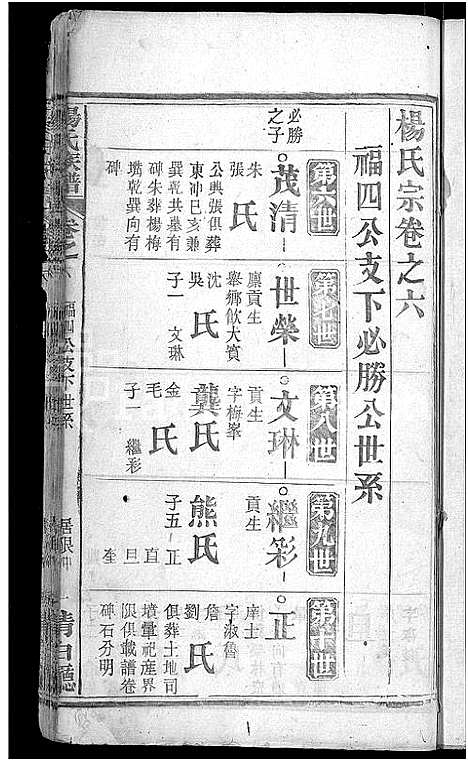 楊氏宗卷之六
福四公支下必勝公世系
第六世
必勝之子
茂清
朱
張
氏
公與張俱葬
東冲巳亥兼
巽乾共墓有
碑朱葬楊梅
嘴乾巽向有
碑
第七世
世榮
廪貢生
舉鄉飲大賓
沈
吳
氏
子一 文琳
第八世
文琳
貢生
字梅峯
龔氏
金
毛
氏
子一 繼彩
第九世
繼彩
貢生
熊氏
子五 正
直
旦
奎
第十世
正
庠士
字淑魯
詹
劉
氏
俱葬土地司
墳暈祀産界
限俱載譜卷
碑石分明
楊氏家譜
卷之六
福四公支下世系
一
清白